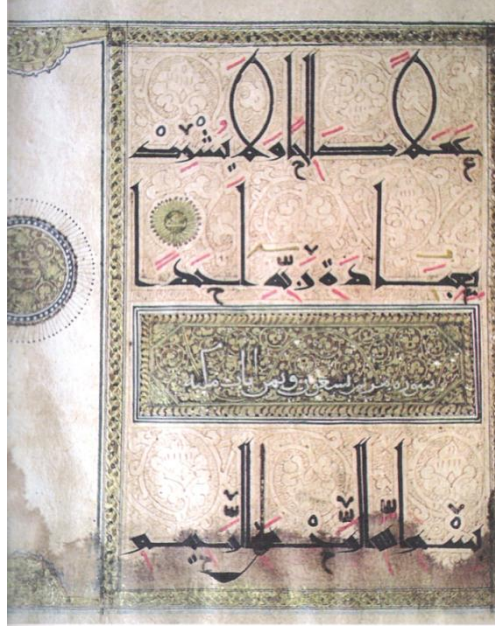 عَمَلًا صَالِحًا وَلَا يُشْرِكْ
بِعِبَادَةِ رَبِّهِ أَحَدًا
سورة مريم تسعون وثمن ايات مكية
بِسْمِ اللَّهِ الرَّحْمَنِ الرَّحِيمِ